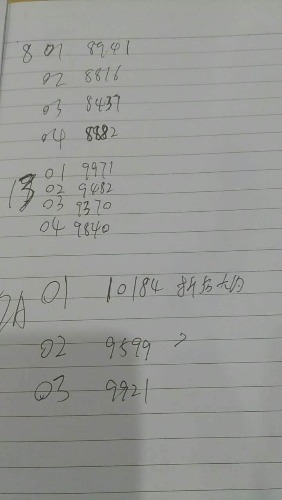 8 01 8941
02 8816
03 8437
04 8882
13 01 9971
02 9482
03 9370
04 9840
01 10184
02 9599
03 9921